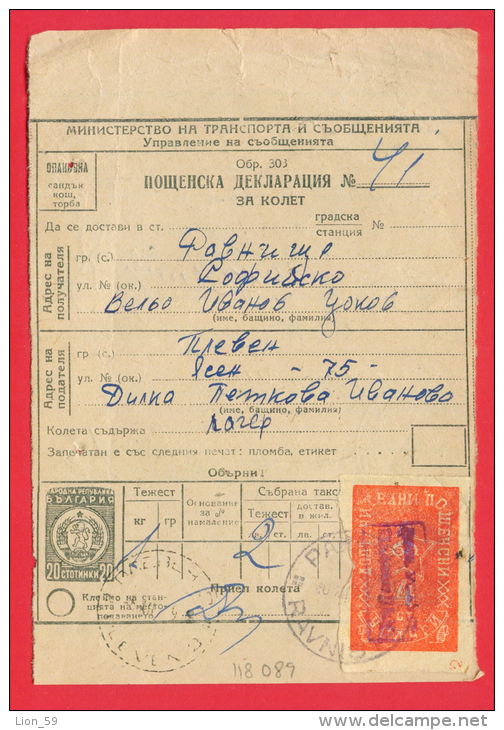 МИНИСТЕРСТВО НА ТРАНСПОРТА И СЪОБЩЕНИЯТА
Управление на съобщенията
Обр. 303
ОПАКОВКА
сандък
кош,
торба
ПОЩЕНСКА ДЕКЛАРАЦИЯ № 41
ЗА КОЛЕТ
Да се достави в ст. градска станция №
Адрес на получателя
гр. (с.) Равнище
ул. № (ок.) Софийско
Вельо Иванов Цоков
(име, бащино, фамилия)
Адрес на подателя
гр (с.) Плевен
ул. № (ок.) Ясен - 75 -
Дилка Петкова Иванова
(име, бащино, фамилия)
Колета съдържа
Запечатан е със следния печат: пломба, етикет
Обърни!
НАРОДНА РЕПУБЛИКА
БЪЛГАРИЯ
20 СТОТИНКИ 20
Тежест
кг гр
Основание за намаление
Събрана такса
Тежест
достав. в жил.
лв. ст. лв. ст.
2
Приел колета
Клеймо на станцията на местоподаването
RAVNIC
118 089
Lion_59